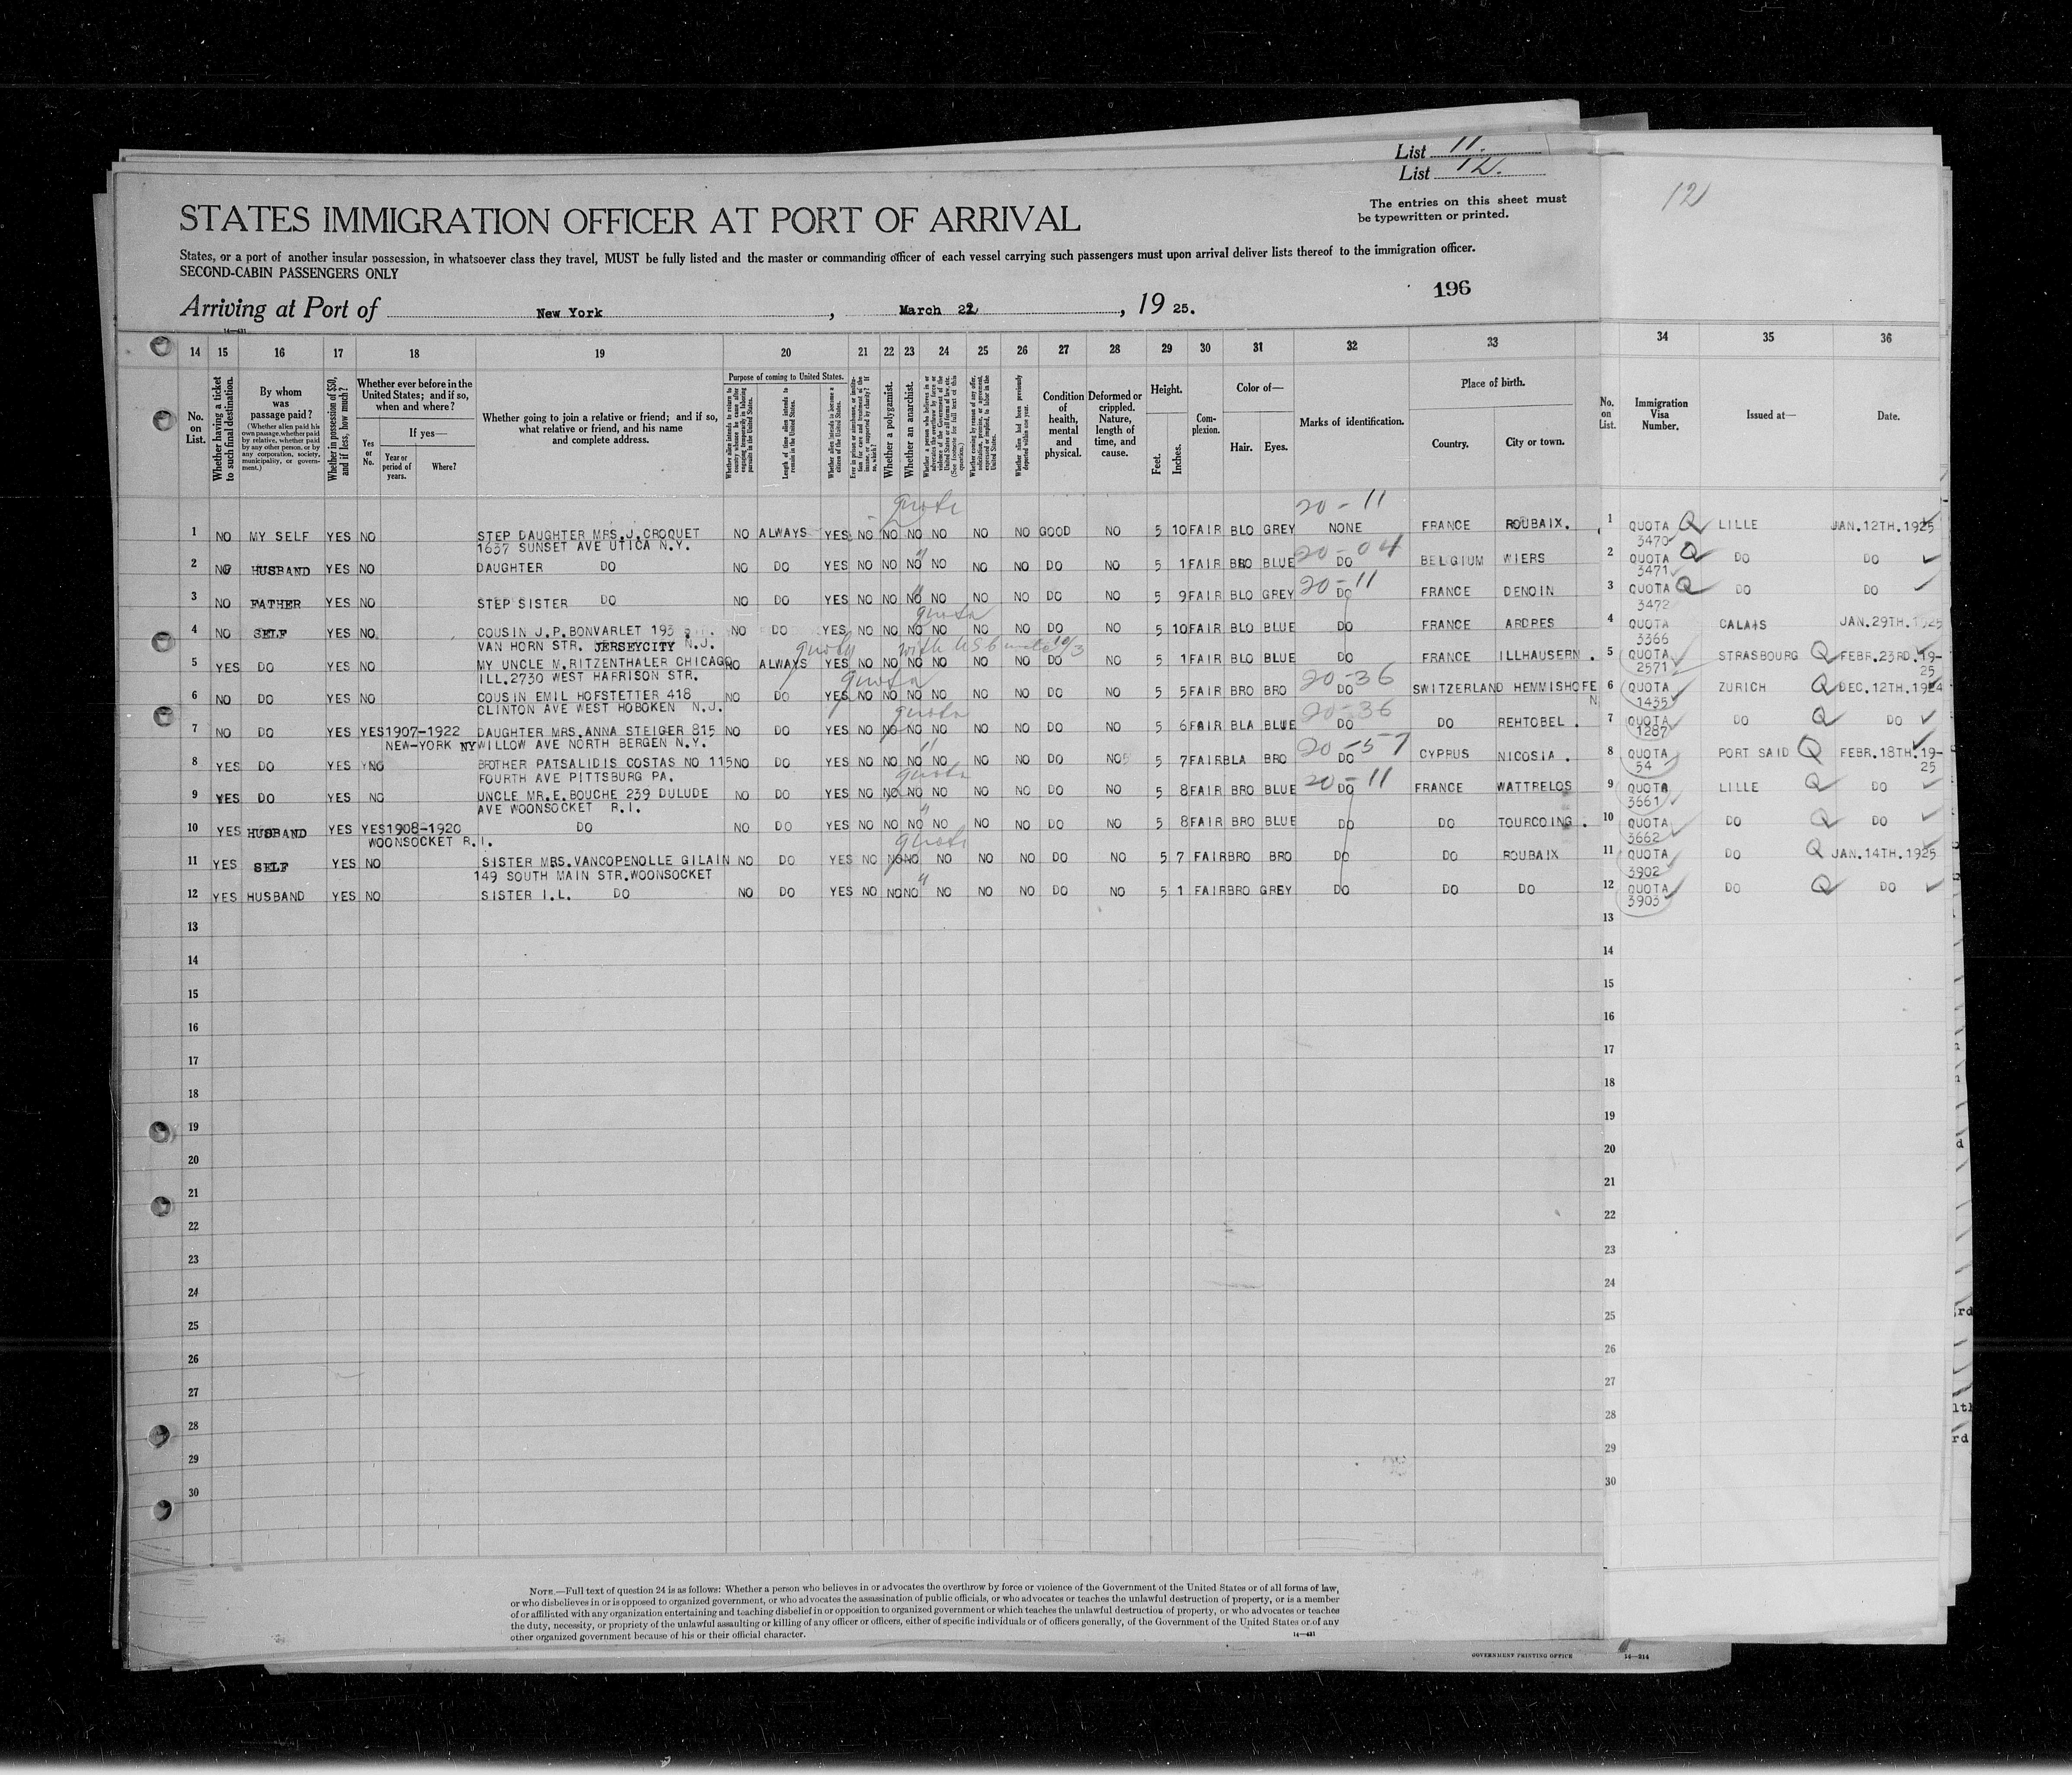 List 11.
List 12.
12
The entries on this sheet must
be typewritten or printed.
STATES IMMIGRATION OFFICER AT PORT OF ARRIVAL
States, or a port of another insular possession, in whatsoever class they travel, MUST be fully listed and the master or commanding officer of each vessel carrying such passengers must upon arrival deliver lists thereof to the immigration officer.
SECOND-CABIN PASSENGERS ONLY
196
Arriving at Port of New York, March 22, 19 25.
14—431
14 15 16 17 18 19 20 21 22 23 24 25 26 27 28 29 30 31 32 33 34 35 36
No. on List.
Whether having a ticket to such final destination.
By whom was passage paid?
(Whether alien paid his own passage, whether paid by relative, whether paid by any other person, or by any corporation, society, municipality, or government.)
Whether in possession of $50, and if less, how much?
Whether ever before in the United States; and if so, when and where?
Yes or No.
If yes—
Year or period of years.
Where?
Whether going to join a relative or friend; and if so, what relative or friend, and his name and complete address.
Purpose of coming to United States.
Length of time alien intends to remain in the United States.
Whether alien intends to become a citizen of the United States.
Whether a polygamist.
Whether an anarchist.
Condition of health, mental and physical.
Deformed or crippled. Nature, length of time, and cause.
Height.
Feet.
Inches.
Complexion.
Color of—
Hair.
Eyes.
Marks of identification.
Place of birth.
Country.
City or town.
No. on List.
Immigration Visa Number.
Issued at—
Date.
quota 20-11
1 NO MY SELF YES NO STEP DAUGHTER MRS.J.CROQUET NO ALWAYS YES NO NO NO NO NO NO GOOD NO 5 10 FAIR BLO GREY NONE FRANCE ROUBAIX. 1 QUOTA Q LILLE JAN.12TH.1925
1637 SUNSET AVE UTICA N.Y. 3470
2 NO HUSBAND YES NO DAUGHTER DO NO DO YES NO NO NO NO NO NO DO NO 5 1 FAIR BRO BLUE 20-04 DO BELGIUM WIERS 2 QUOTA Q DO DO
3471
3 NO FATHER YES NO STEP SISTER DO NO DO YES NO NO NO NO NO NO DO NO 5 9 FAIR BLO GREY 20-11 DO FRANCE DENOIN 3 QUOTA Q DO DO
3472
quota
4 NO SELF YES NO COUSIN J.P.BONVARLET 193 NO DO YES NO NO NO NO NO NO DO NO 5 10 FAIR BLO BLUE DO FRANCE ARDRES 4 QUOTA CALAIS JAN.29TH.1925
VAN HORN STR. JERSEYCITY N.J. quota 3366
5 YES DO YES NO MY UNCLE M.RITZENTHALER CHICAGO NO ALWAYS YES NO NO NO NO NO NO DO NO 5 1 FAIR BLO BLUE DO FRANCE ILLHAUSERN. 5 QUOTA STRASBOURG Q FEBR.23RD.19-
ILL.2730 WEST HARRISON STR. quota 2571 25
6 NO DO YES NO COUSIN EMIL HOFSTETTER 418 NO DO YES NO NO NO NO NO NO DO NO 5 5 FAIR BRO BRO 20-36 DO SWITZERLAND HEMMISHOFE 6 QUOTA ZURICH Q DEC.12TH.1924
CLINTON AVE WEST HOBOKEN N.J. quota N 1435
7 NO DO YES YES 1907-1922 DAUGHTER MRS.ANNA STEIGER 815 NO DO YES NO NO NO NO NO NO DO NO 5 6 FAIR BLA BLUE 20-36 DO DO REHTOBEL. 7 QUOTA DO Q DO
NEW-YORK NY WILLOW AVE NORTH BERGEN N.Y. 1287
8 YES DO YES NO BROTHER PATSALIDIS COSTAS NO 115 NO DO YES NO NO NO NO NO NO DO NO 5 7 FAIR BLA BRO 20-57 DO CYPRUS NICOSIA. 8 QUOTA PORT SAID Q FEBR.18TH.19-
FOURTH AVE PITTSBURG PA. quota 54 25
9 YES DO YES NO UNCLE MR.E.BOUCHE 239 DULUDE NO DO YES NO NO NO NO NO NO DO NO 5 8 FAIR BRO BLUE 20-11 DO FRANCE WATTRELOS 9 QUOTA LILLE Q DO
AVE WOONSOCKET R.I. 3661
10 YES HUSBAND YES YES 1908-1920 DO NO DO YES NO NO NO NO NO NO DO NO 5 8 FAIR BRO BLUE DO DO TOURCOING. 10 QUOTA DO Q DO
WOONSOCKET R.I. quota 3662
11 YES SELF YES NO SISTER MRS.VANCOPENOLLE GILAIN NO DO YES NO NO NO NO NO NO DO NO 5 7 FAIR BRO BRO DO DO ROUBAIX 11 QUOTA DO Q JAN.14TH.1925
149 SOUTH MAIN STR.WOONSOCKET 3902
12 YES HUSBAND YES NO SISTER I.L. DO NO DO YES NO NO NO NO NO NO DO NO 5 1 FAIR BRO GREY DO DO DO 12 QUOTA DO Q DO
3903
13 13
14 14
15 15
16 16
17 17
18 18
19 19
20 20
21 21
22 22
23 23
24 24
25 25
26 26
27 27
28 28
29 29
30 30
NOTE.—Full text of question 24 is as follows: Whether a person who believes in or advocates the overthrow by force or violence of the Government of the United States or of all forms of law,
or who disbelieves in or is opposed to organized government, or who advocates the assassination of public officials, or who advocates or teaches the unlawful destruction of property, or is a member
of or affiliated with any organization entertaining and teaching disbelief in or opposition to organized government or which teaches the unlawful destruction of property, or who advocates or teaches
the duty, necessity, or propriety of the unlawful assaulting or killing of any officer or officers, either of specific individuals or of officers generally, of the Government of the United States or of any
other organized government because of his or their official character.
14—431
GOVERNMENT PRINTING OFFICE 14—214